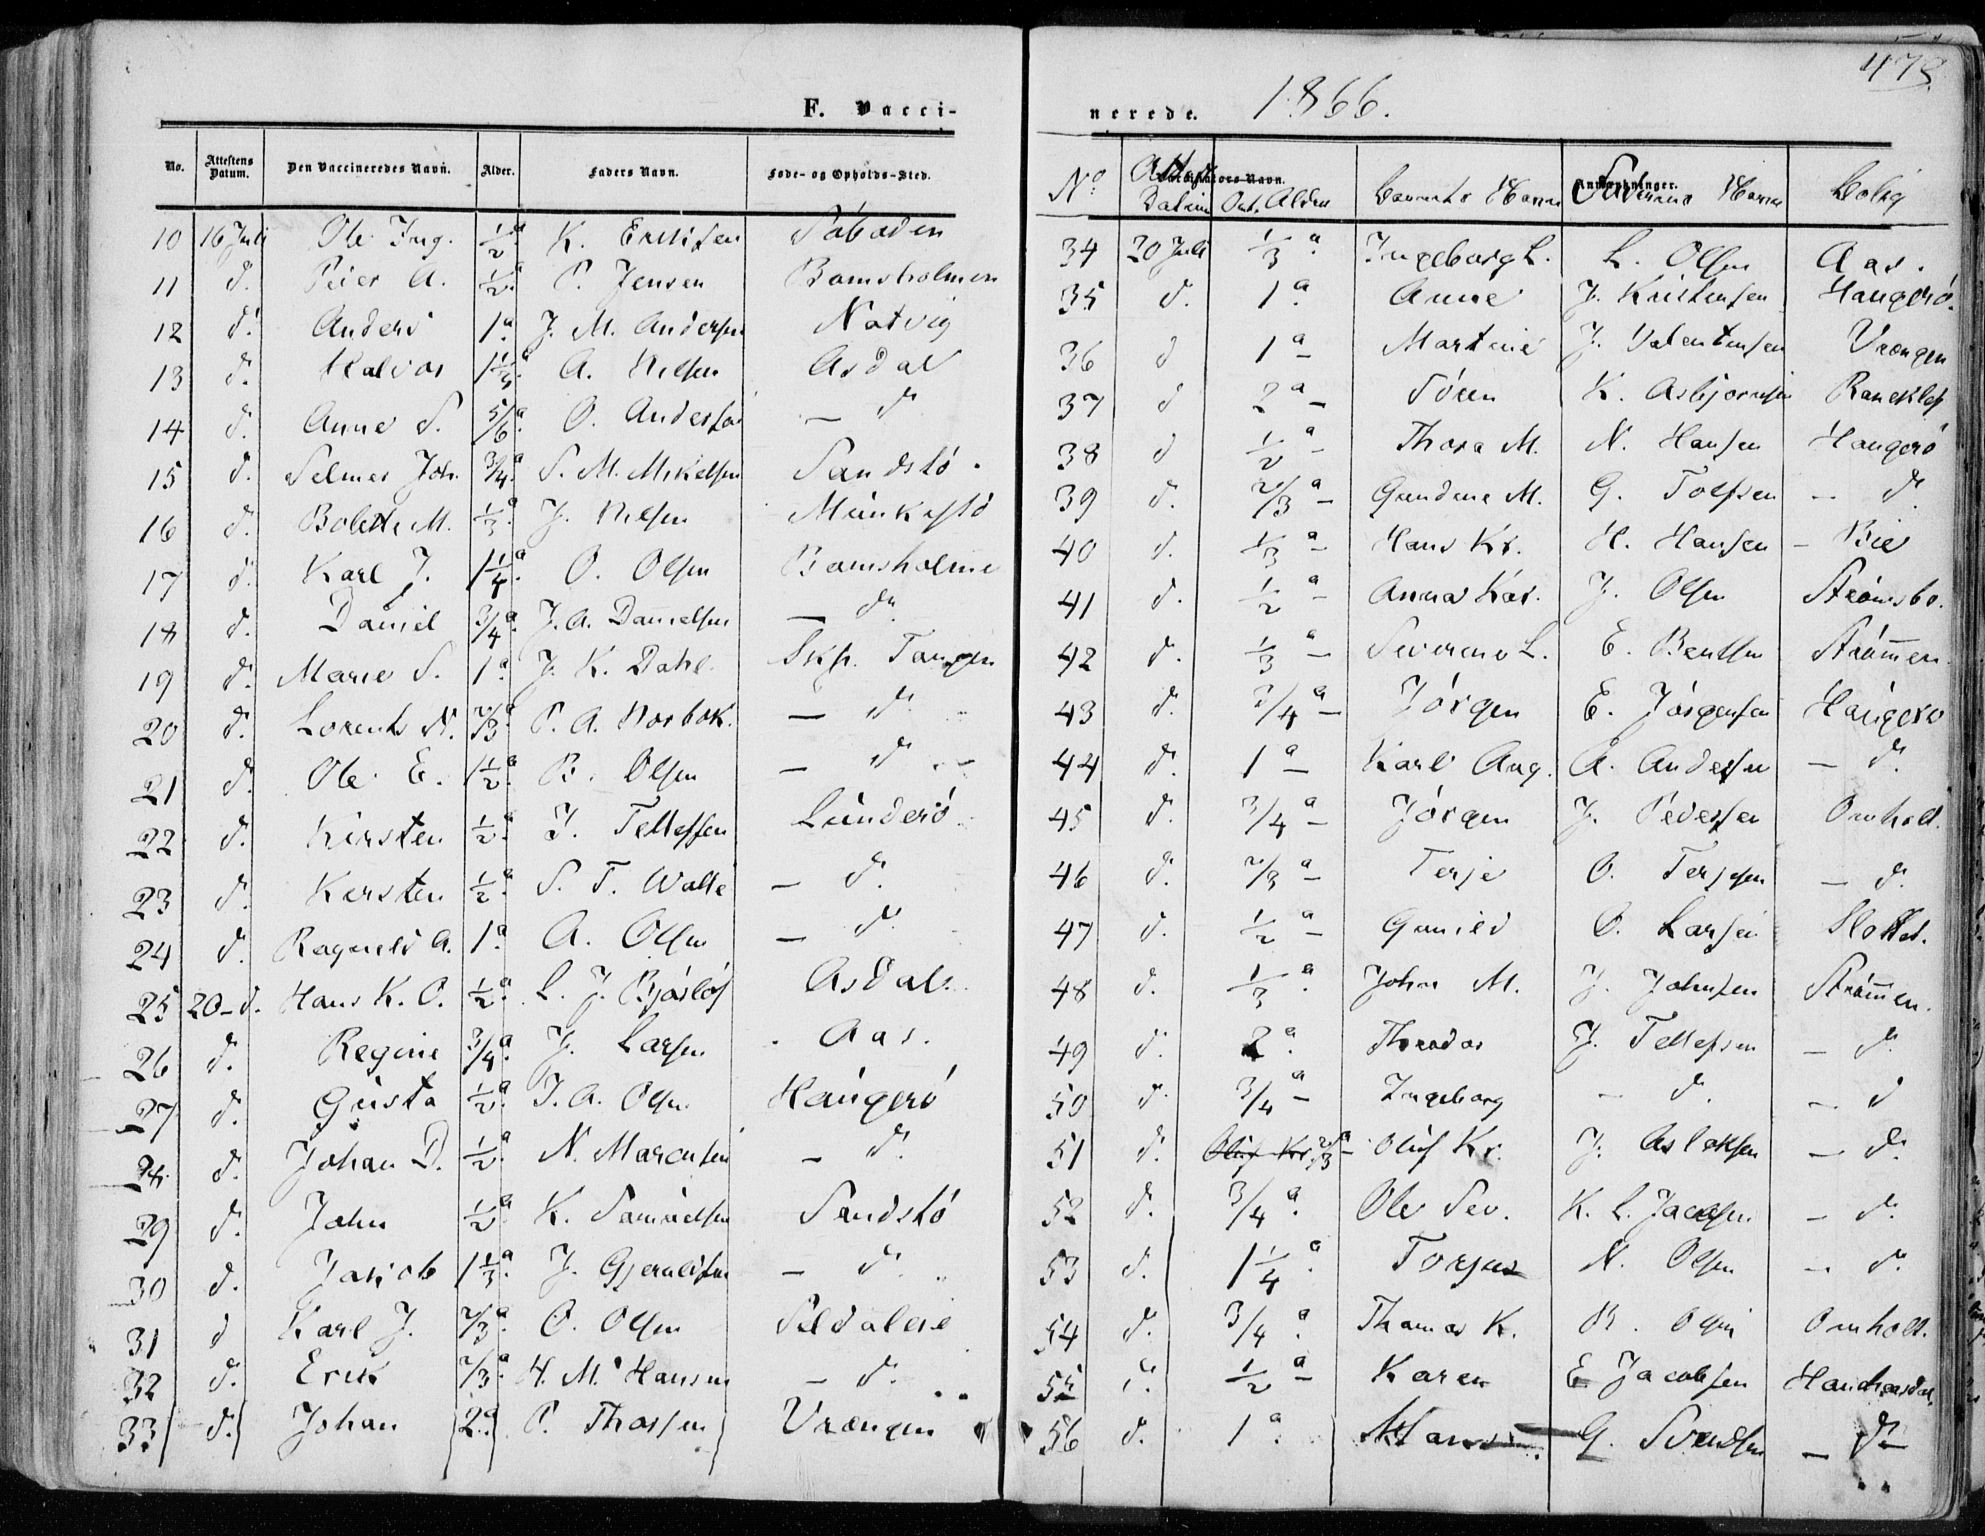 478
F. Vacci-
No. Attestens Datum. Den Vaccineredes Navn. Alder. Faders Navn. Føde- og Opholds-Sted.
10 16 Juli Ole Ing. 1/2 a K. Eriksen
11 d. Peder A. 1/2 a P. Jensen Bamsholmen
12 d. Anders 1 a J. M. Andersen Natvig
13 d. Halvor 1 1/3 a A. Nilsen Asdal
14 d. Anne S. 5/6 a O. Andersen — d.
15 d. Selmer Joh. 3/4 a S. M. Mikelsen Sandstö.
16 d. Bolette M. 1/3 a J. Nilsen Munkestö
17 d. Karl J. 1 1/4 a O. Olsen Bamsholme
18 d. Daniel 3/4 a J. A. Danielsen — d.
19 d. Marie S. 1 a J. K. Dahl Skp. Tangen
20 d. Lorents N. 2/3 a P. A. — d.
21 d. Ole E. 1 1/2 a B. Olsen — d.
22 d. Kirsten 1/2 a T. Tellefsen Lunderö
23 d. Kirsten 1/2 a S. T. — d.
24 d. Ragnild A. 1 a A. Olsen — d.
25 20-d. Hans K. O. 1/2 a L. J. Asdal.
26 d. Regine 3/4 a J. Larsen Aas.
27 d. Gusta 1/2 a T. A. Olsen Haugerö
28 d. Johan D. 1/2 a N. Marcusen — d.
29 d. John 1/2 a K. Samuelsen Sandstö
30 d. Jakob 1 1/3 a J. Gjeruldsen — d.
31 d Karl J. 2/3 a O. Olsen
32 d. Erik 2/3 a H. M. Hansen — d.
33 d. Johan 2 a P. Thorsen Vrængen
nerede. 1866.
No. Attest Datum Alder Barnets Navn Faderens Navn Bolig
34 20 Juli 1/3 a Ingeborg L. L. Olsen Aas.
35 d. 1 a Anne J. Kristensen Haugerö.
36 d 1 a – Martine J. Valentinsen Vrængen
37 d 2 a – Sören K. Asbjornsen
38 d 1/2 a – Thora M. N. Hansen Haugerö
39 d. 2/3 a – Gundine M. G. Tolfsen — d.
40 d. 1/3 a – Hans Kr. H. Hansen – Bie
41 d. 1/2 a – Anna Kar. J. Olsen Strömsbo.
42 d. 1/3 a – Severine L. E. Bentsen Strömmen.
43 d. 3/4 a – Jörgen E. Jörgensen Haugerö
44 d. 1 a – Karl Aug. A. Andersen — d.
45 d. 3/4 a – Jörgen J. Pedersen Omholt.
46 d. 2/3 a – Terje O. Terjesen — d.
47 d. 1/2 a – Gunild O. Larsen Slottet.
48 d. 1/3 a John M. J. Johnsen Strömmen.
49 d. 2 a Theodor J. Tellefsen — d.
50 d. 3/4 a – Ingeborg — d. — d
51 d. Oluf Kr. 2/3 a – Oluf Kr. J. Aslaksen — d.
52 d. 3/4 a Ole Sev. K. L. Jacobsen — d.
53 d. 1 1/4 a Torjus N. Olsen — d.
54 d. 3/4 a Thomas K. B. Olsen Omholt.
55 d. 1/2 a – Karen E. Jacobsen
56 d. 1 a Hans G. Svendsen — d.